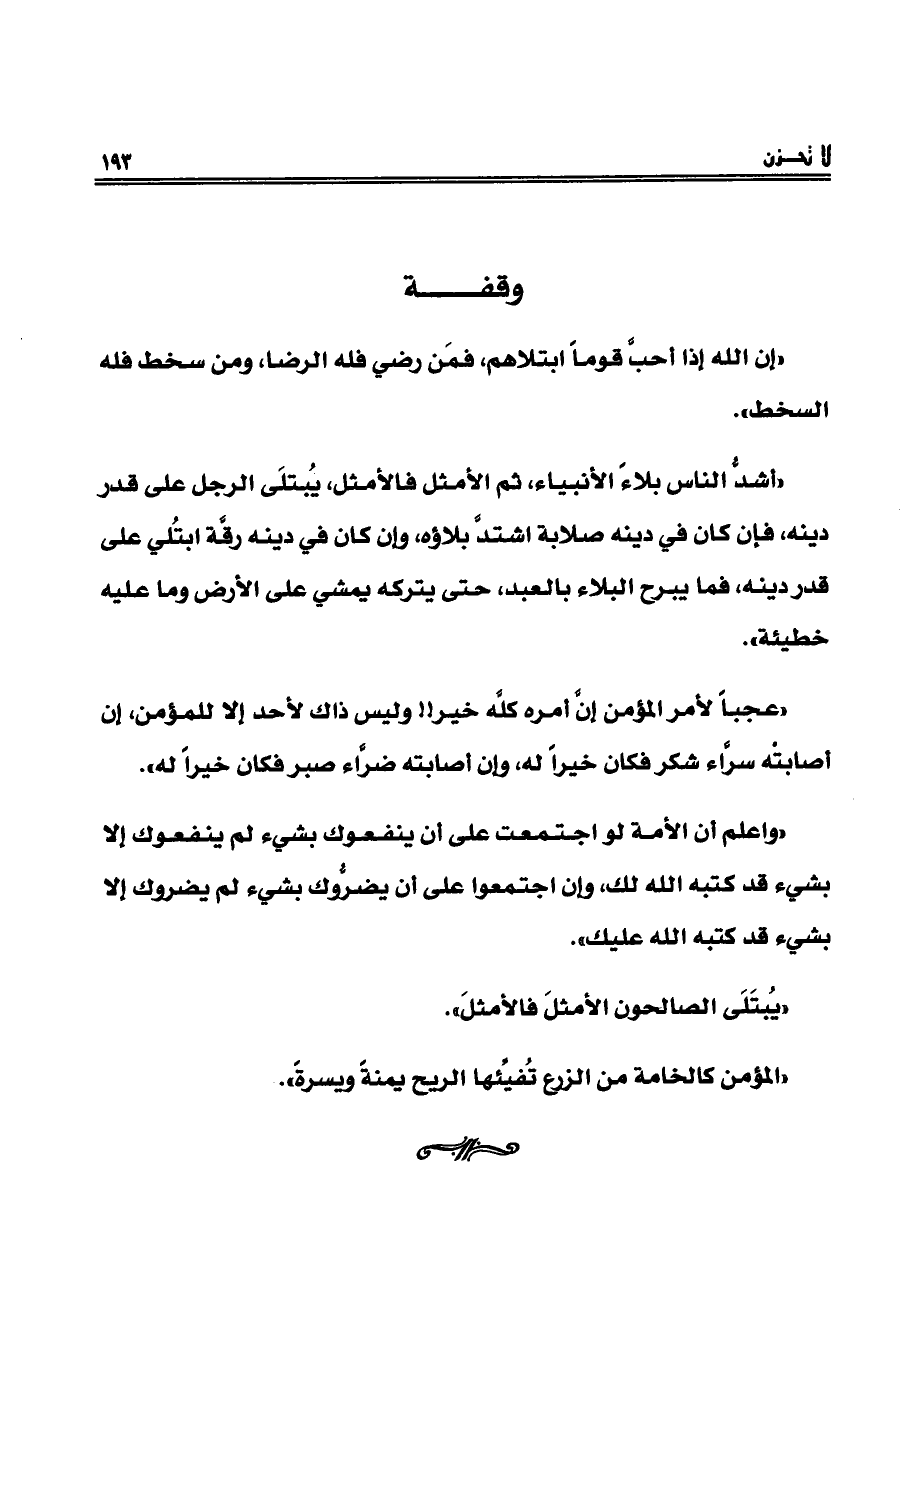 لا تحـزن
١٩٣
وقفـــــة
«إن الله إذا أحبَّ قوماً ابتلاهم، فمَن رضي فله الرضا، ومن سخط فله
السخط».
«أشدُّ الناس بلاءً الأنبياء، ثم الأمثل فالأمثل، يُبتلَى الرجل على قدر
دينه، فإن كان في دينه صلابة اشتدَّ بلاؤه، وإن كان في دينه رقَّة ابتُلي على
قدر دينه، فما يبرح البلاء بالعبد، حتى يتركه يمشي على الأرض وما عليه
خطيئة».
«عجباً لأمر المؤمن إنَّ أمره كلَّه خير!! وليس ذاك لأحد إلا للمؤمن، إن
أصابتْه سرَّاء شكر فكان خيراً له، وإن أصابته ضرَّاء صبر فكان خيراً له».
«واعلم أن الأمة لو اجتمعت على أن ينفعوك بشيء لم ينفعوك إلا
بشيء قد كتبه الله لك، وإن اجتمعوا على أن يضرُّوك بشيء لم يضروك إلا
بشيء قد كتبه الله عليك».
«يُبتَلَى الصالحون الأمثلَ فالأمثلَ».
«المؤمن كالخامة من الزرع تُفيِّئها الريح يمنةً ويسرةً».